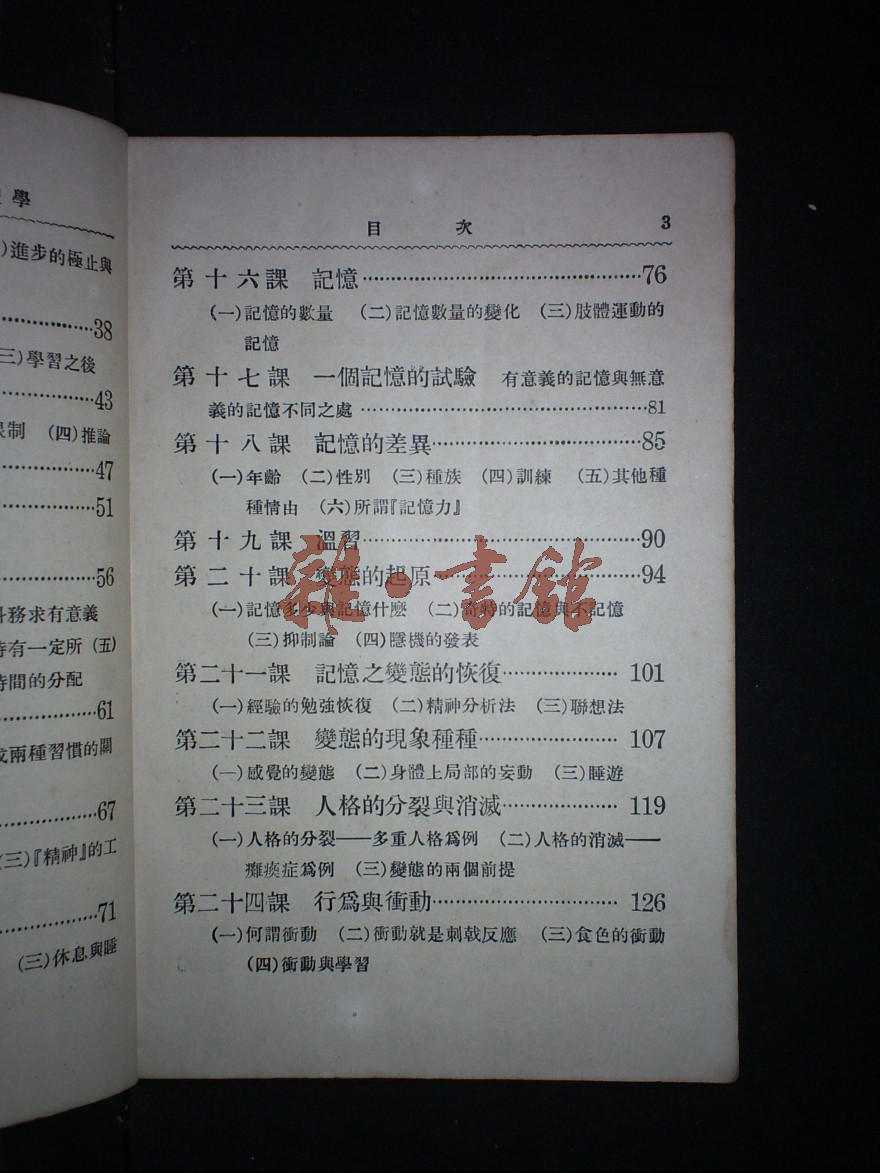 學
)進步的極止與
38
三)學習之後
43
制 (四)推論
47
51
56
務求有意義
有一定所 (五)
時間的分配
61
兩種習慣的關
67
(三)『精神』的工
71
(三)休息與睡
目 次 3
第十六課 記憶 76
(一)記憶的數量 (二)記憶數量的變化 (三)肢體運動的
記憶
第十七課 一個記憶的試驗 有意義的記憶與無意
義的記憶不同之處 81
第十八課 記憶的差異 85
(一)年齡 (二)性別 (三)種族 (四)訓練 (五)其他種
種情由 (六)所謂『記憶力』
第十九課 溫習 90
第二十課 變態的起原 94
(一)記憶多少與記憶什麼 (二)奇特的記憶與不記憶
(三)抑制論 (四)隱機的發表
第二十一課 記憶之變態的恢復 101
(一)經驗的勉強恢復 (二)精神分析法 (三)聯想法
第二十二課 變態的現象種種 107
(一)感覺的變態 (二)身體上局部的妄動 (三)睡遊
第二十三課 人格的分裂與消滅 119
(一)人格的分裂——多重人格爲例 (二)人格的消滅——
癱瘓症爲例 (三)變態的兩個前提
第二十四課 行爲與衝動 126
(一)何謂衝動 (二)衝動就是刺戟反應 (三)食色的衝動
(四)衝動與學習
雜·書館